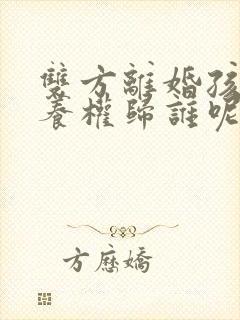 雙方離婚孩
養權歸誰呢
方應嬌